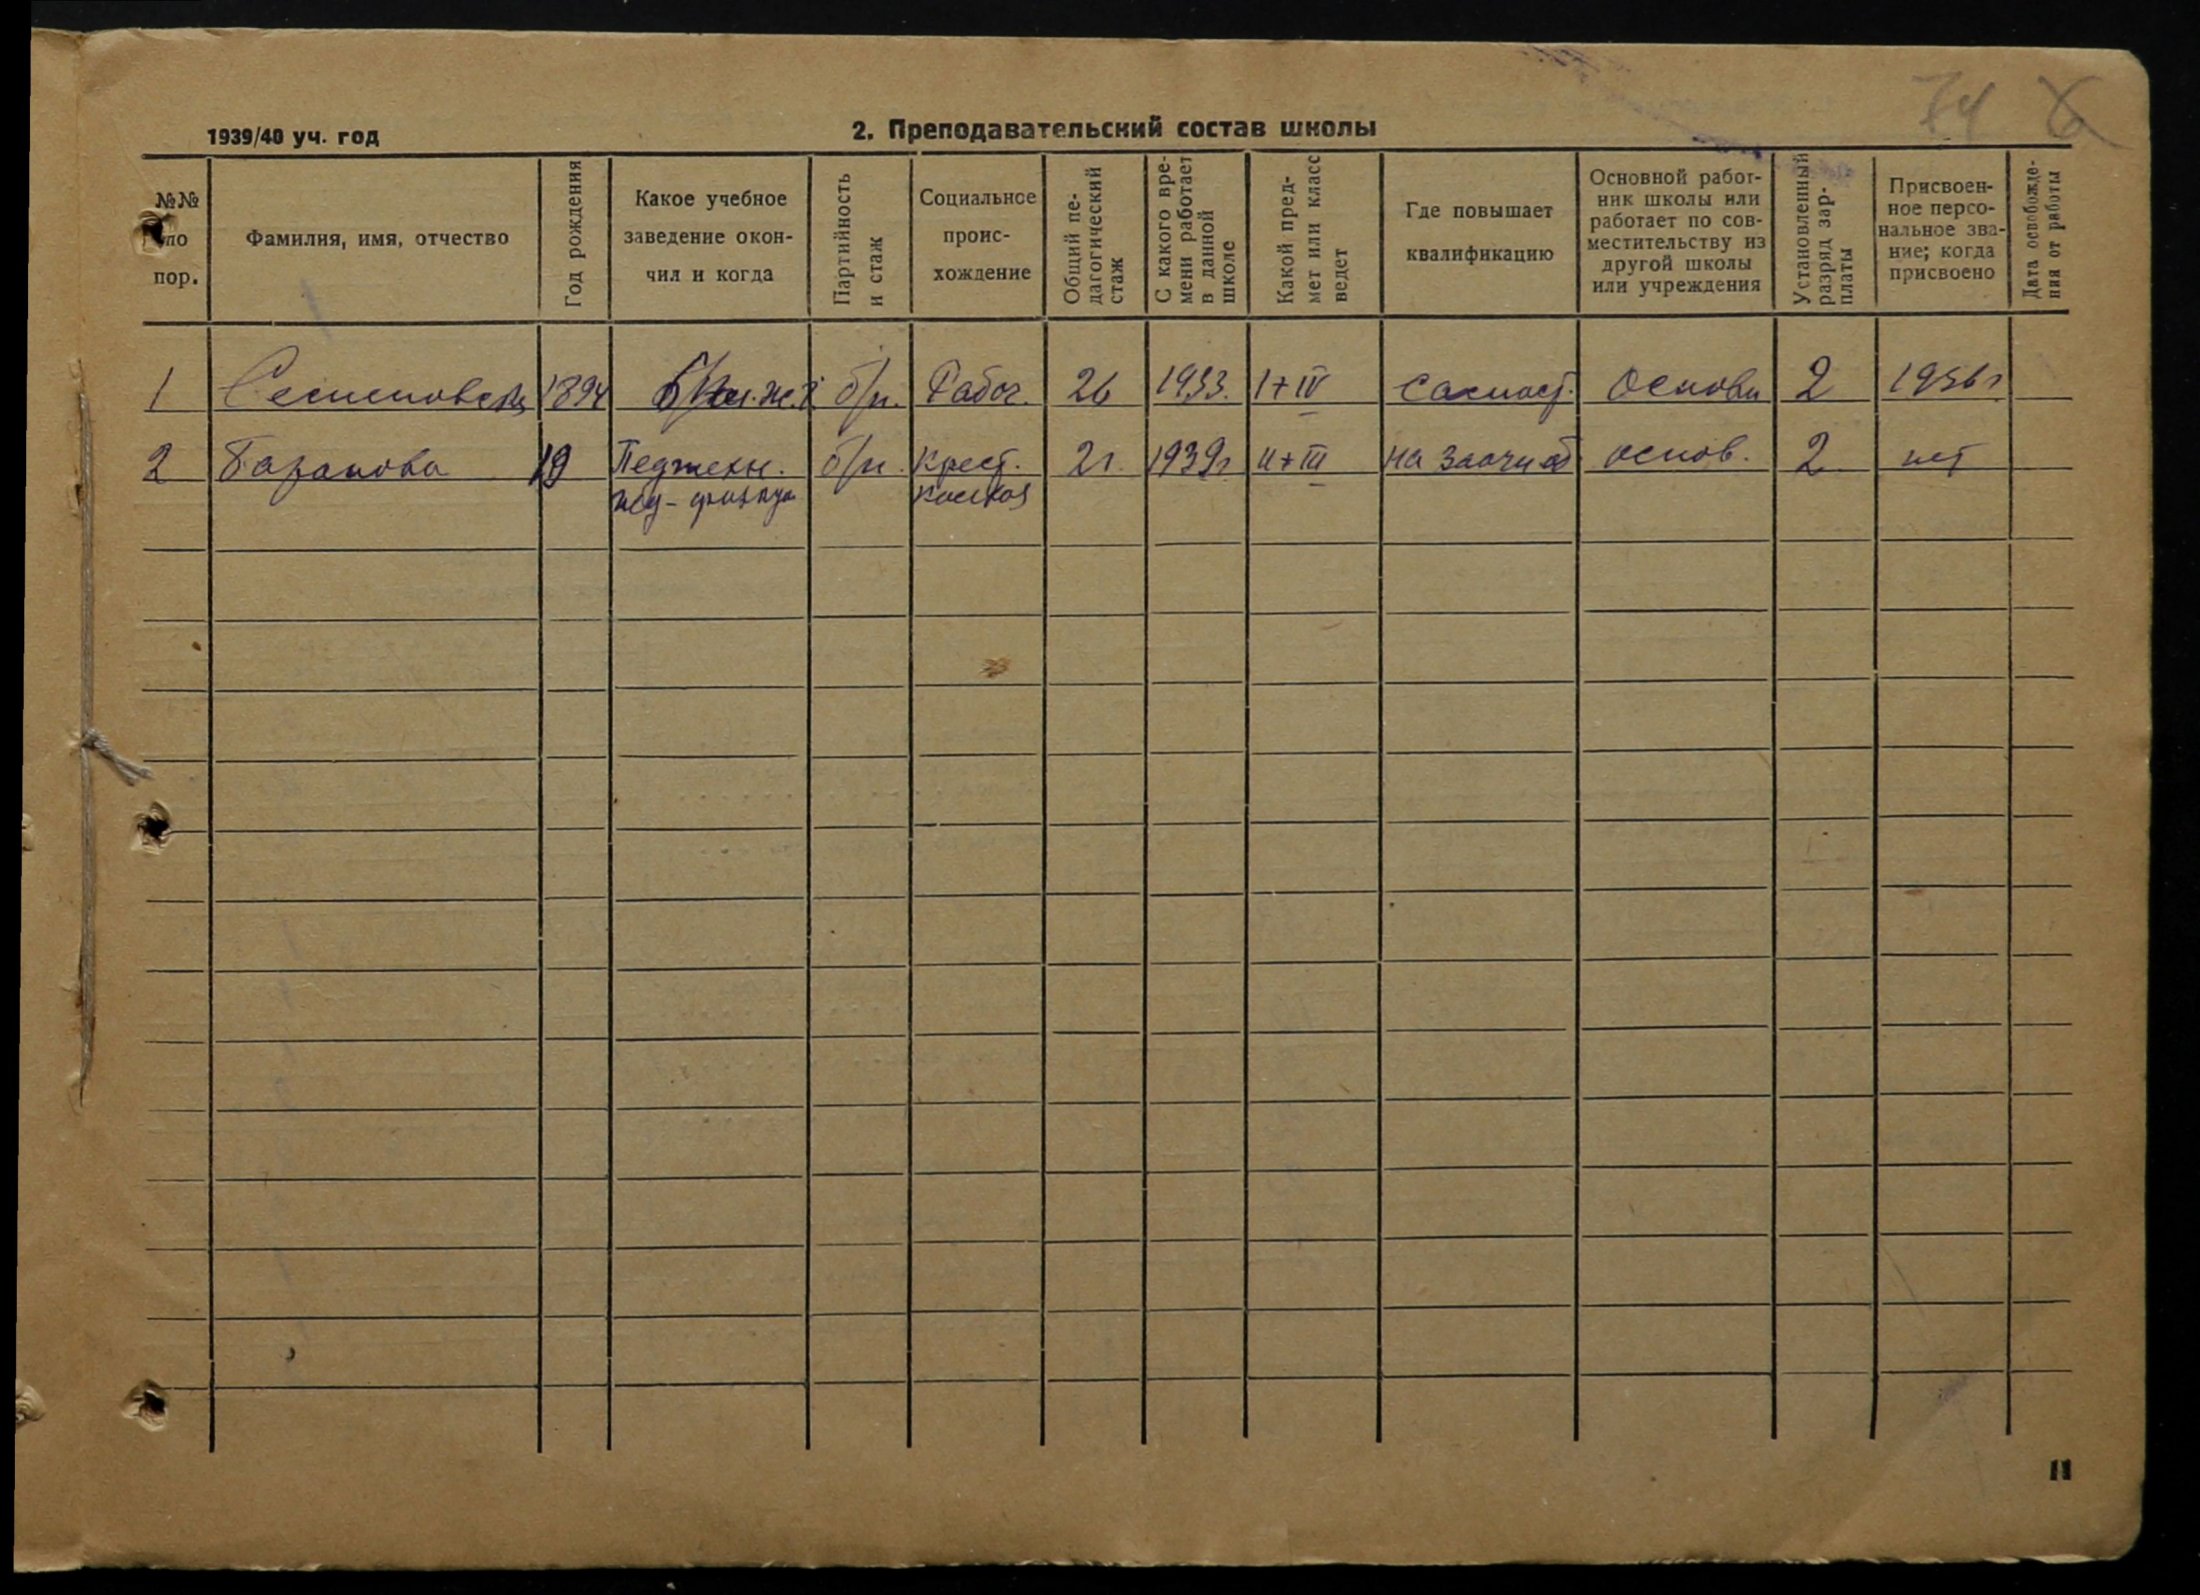 74
1939/40 уч. год
2. Преподавательский состав школы
№№ по пор.
Фамилия, имя, отчество
Год рождения
Какое учебное заведение окончил и когда
Партийность и стаж
Социальное происхождение
Общий педагогический стаж
С какого времени работает в данной школе
Какой предмет или класс ведет
Где повышает квалификацию
Основной работник школы или работает по совместительству из другой школы или учреждения
Установленный разряд зарплаты
Присвоенное персональное звание; когда присвоено
Дата освобождения от работы
1 1894 б/п. Рабоч. 26 1933. I+IV Основн 2 1936 г
2 Баранова 19 Педтехн. б/п. Крест. 2 г. 1939 г II+III на заочн основ. 2 нет
11